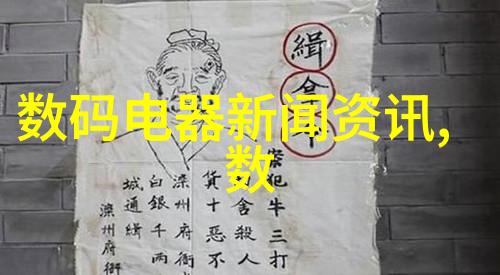 数码电器新闻资讯,
数
緝拿
案犯牛三打
舍殺人
貨十惡不
滦州府衙
白銀千两
城通緝
滦州府衙